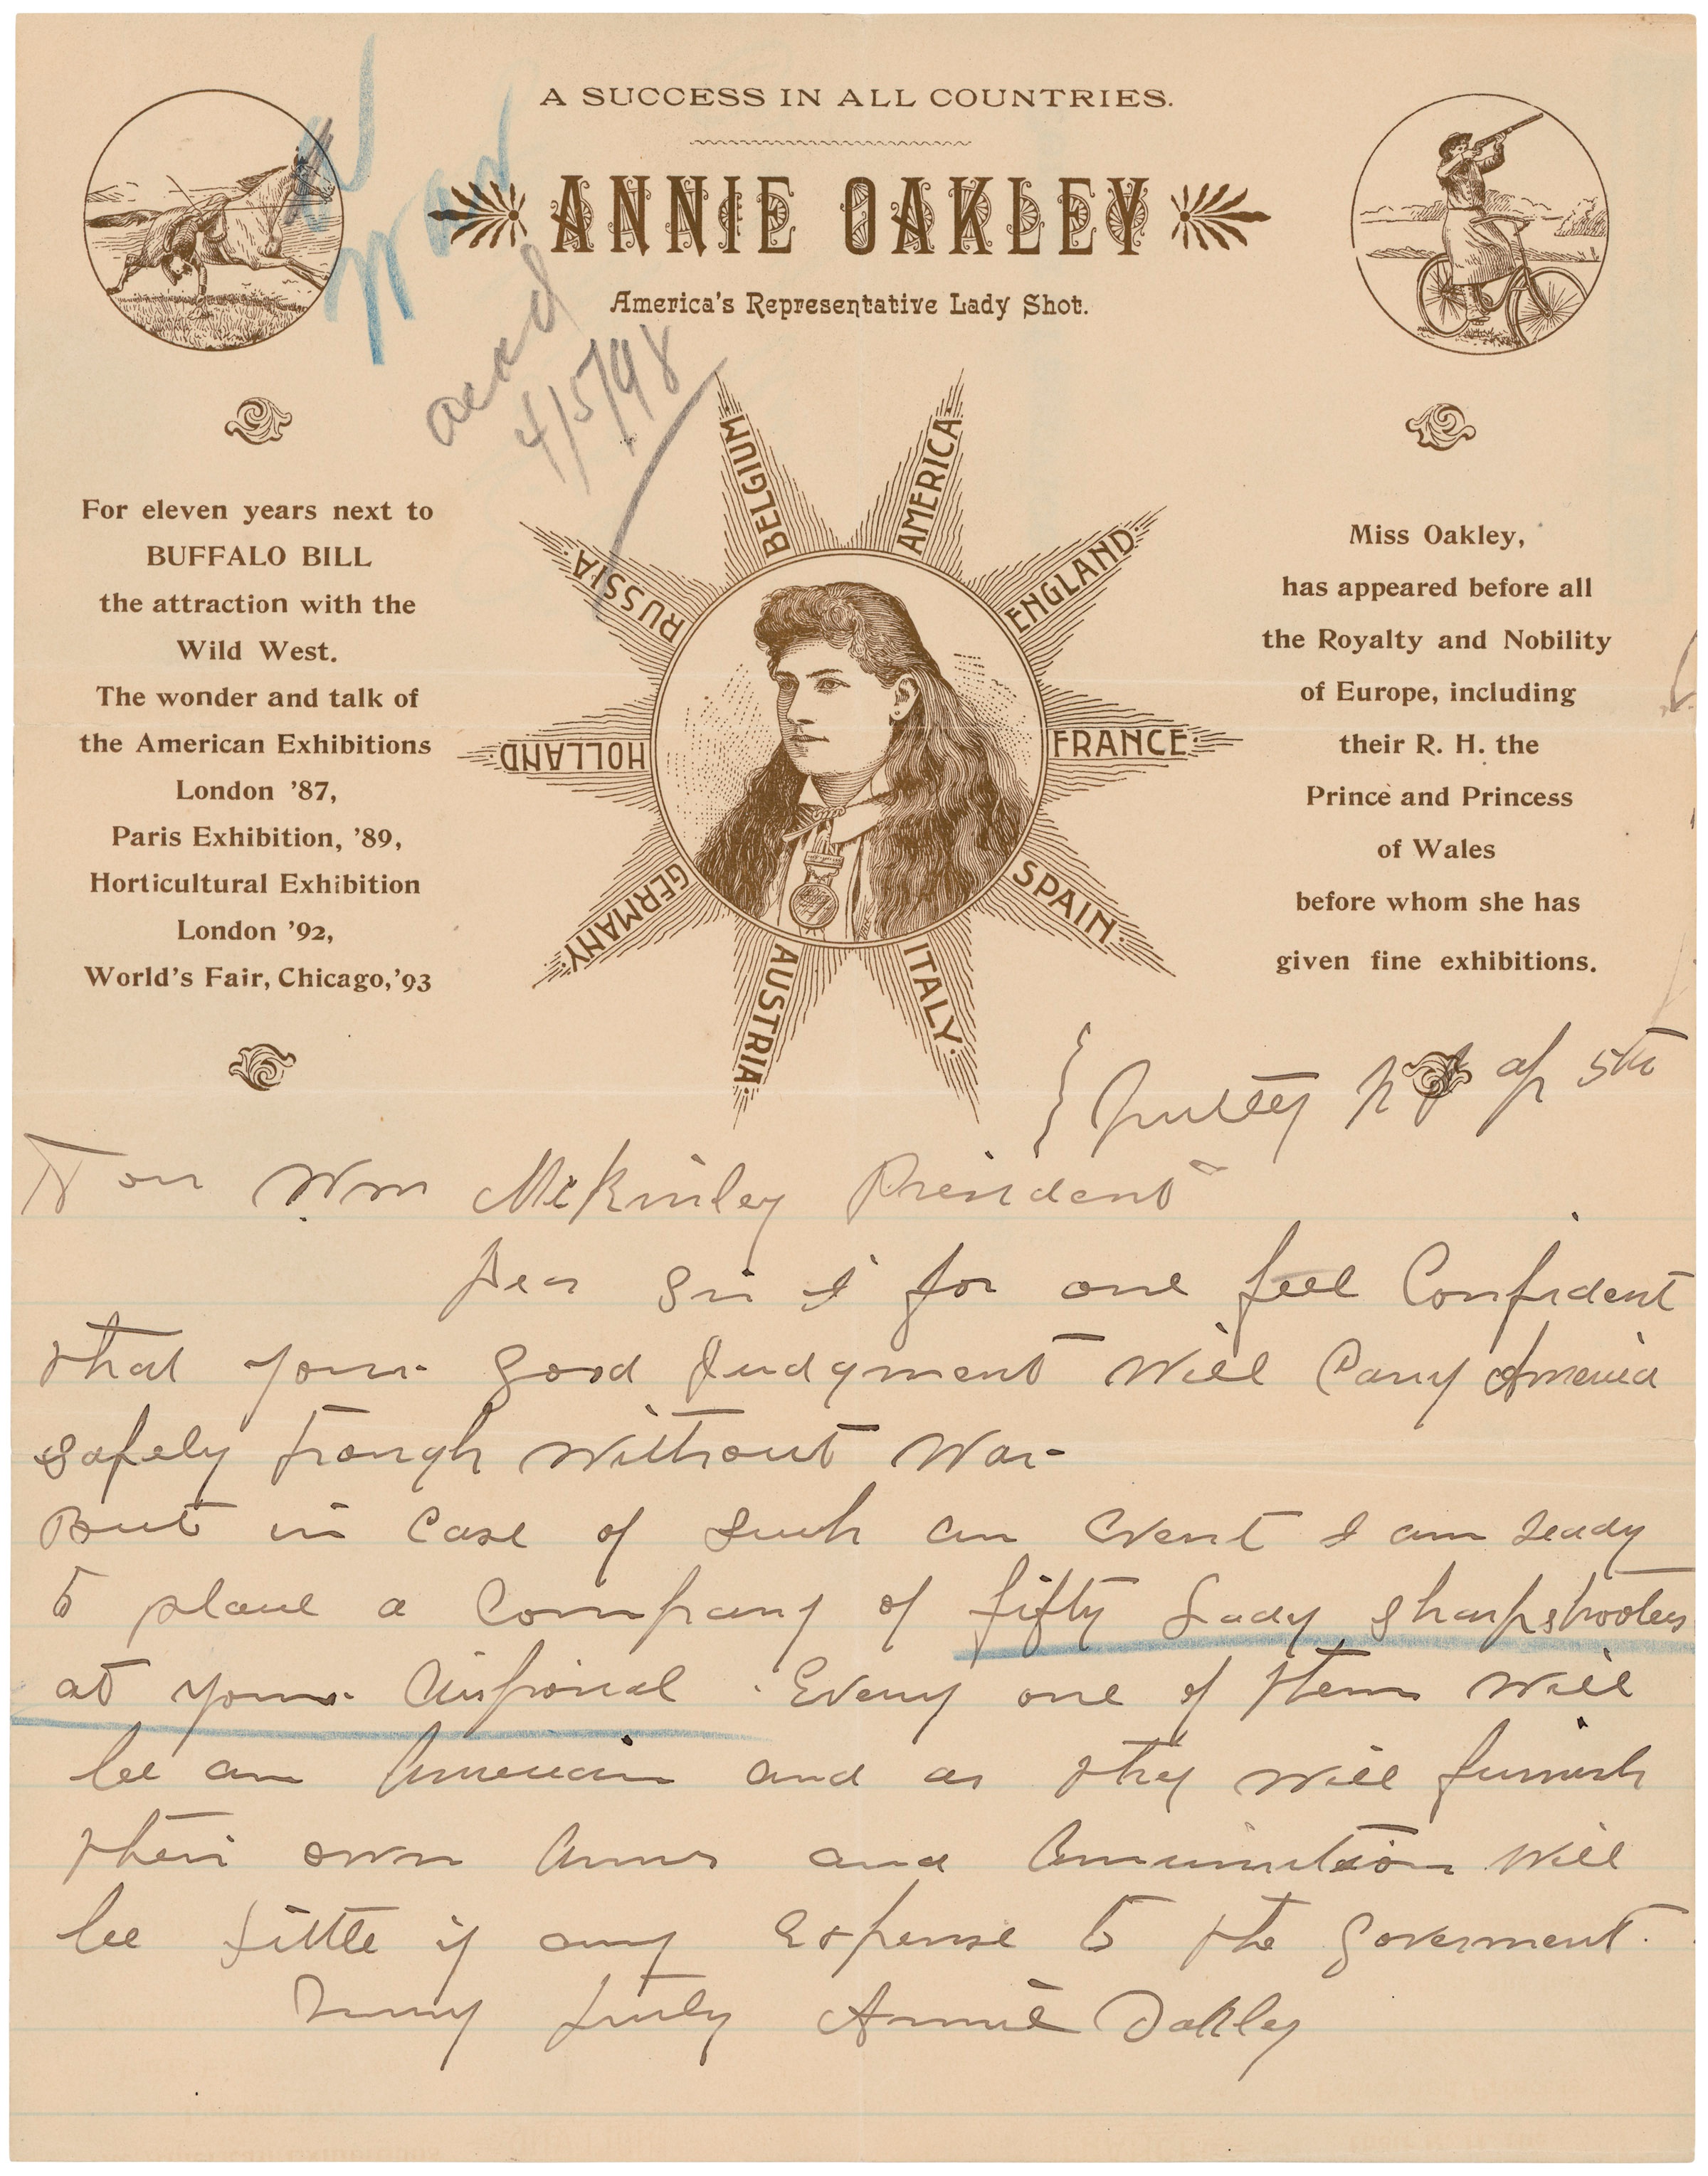 A SUCCESS IN ALL COUNTRIES.
ANNIE OAKLEY
America's Representative Lady Shot.
War
ackd
4/5/98
For eleven years next to
BUFFALO BILL
the attraction with the
Wild West.
The wonder and talk of
the American Exhibitions
London '87,
Paris Exhibition, '89,
Horticultural Exhibition
London '92,
World's Fair, Chicago, '93
AMERICA.
ENGLAND.
FRANCE.
SPAIN.
ITALY.
AUSTRIA.
GERMANY.
HOLLAND.
RUSSIA.
BELGIUM.
Miss Oakley,
has appeared before all
the Royalty and Nobility
of Europe, including
their R. H. the
Prince and Princess
of Wales
before whom she has
given fine exhibitions.
Nutley NJ ap 5th
Hon Wm McKinley President
Dear Sir I for one feel Confident
that your good judgment will carry America
safely trough without War-
But in case of such an event I am ready
to place a Company of fifty lady sharpshooters
at your disposal. Every one of them will
be an American and as they will furnish
their own Arms and Ammunition will
be little if any expense to the Goverment.
Very truly Annie Oakley